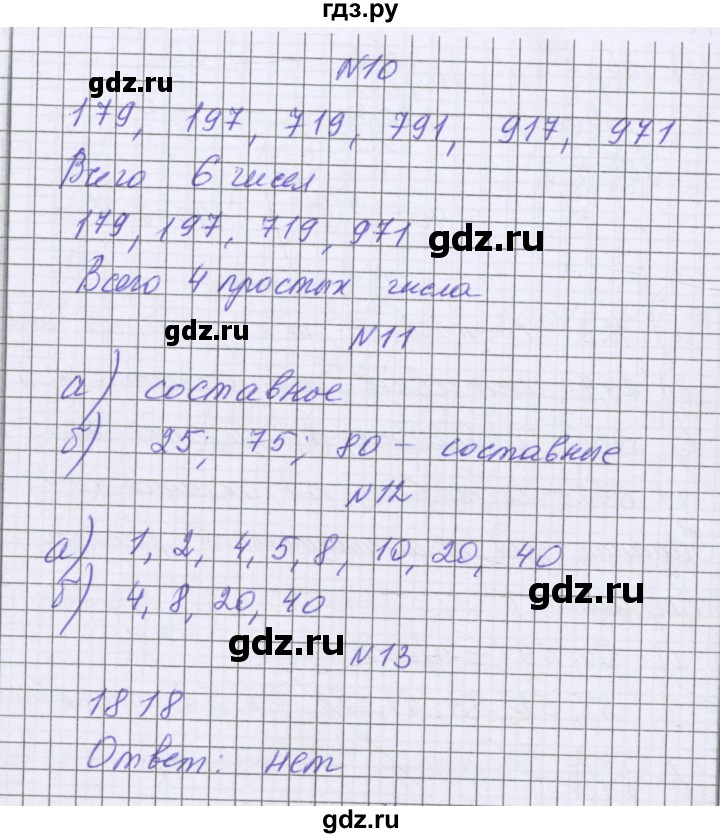 гдз.ру
№10
gdz.ru
179, 197, 719, 791, 917, 971
Всего 6 чисел
179, 197, 719, 971
gdz.ru
Всего 4 простых числа
gdz.ru
№11
а) составное
б) 25; 75; 80 - составные
№12
а) 1, 2, 4, 5, 8, 10, 20, 40
gdz.ru
б) 4, 8, 20, 40
gdz.ru
№13
1818
Ответ: нет
gdz.ru